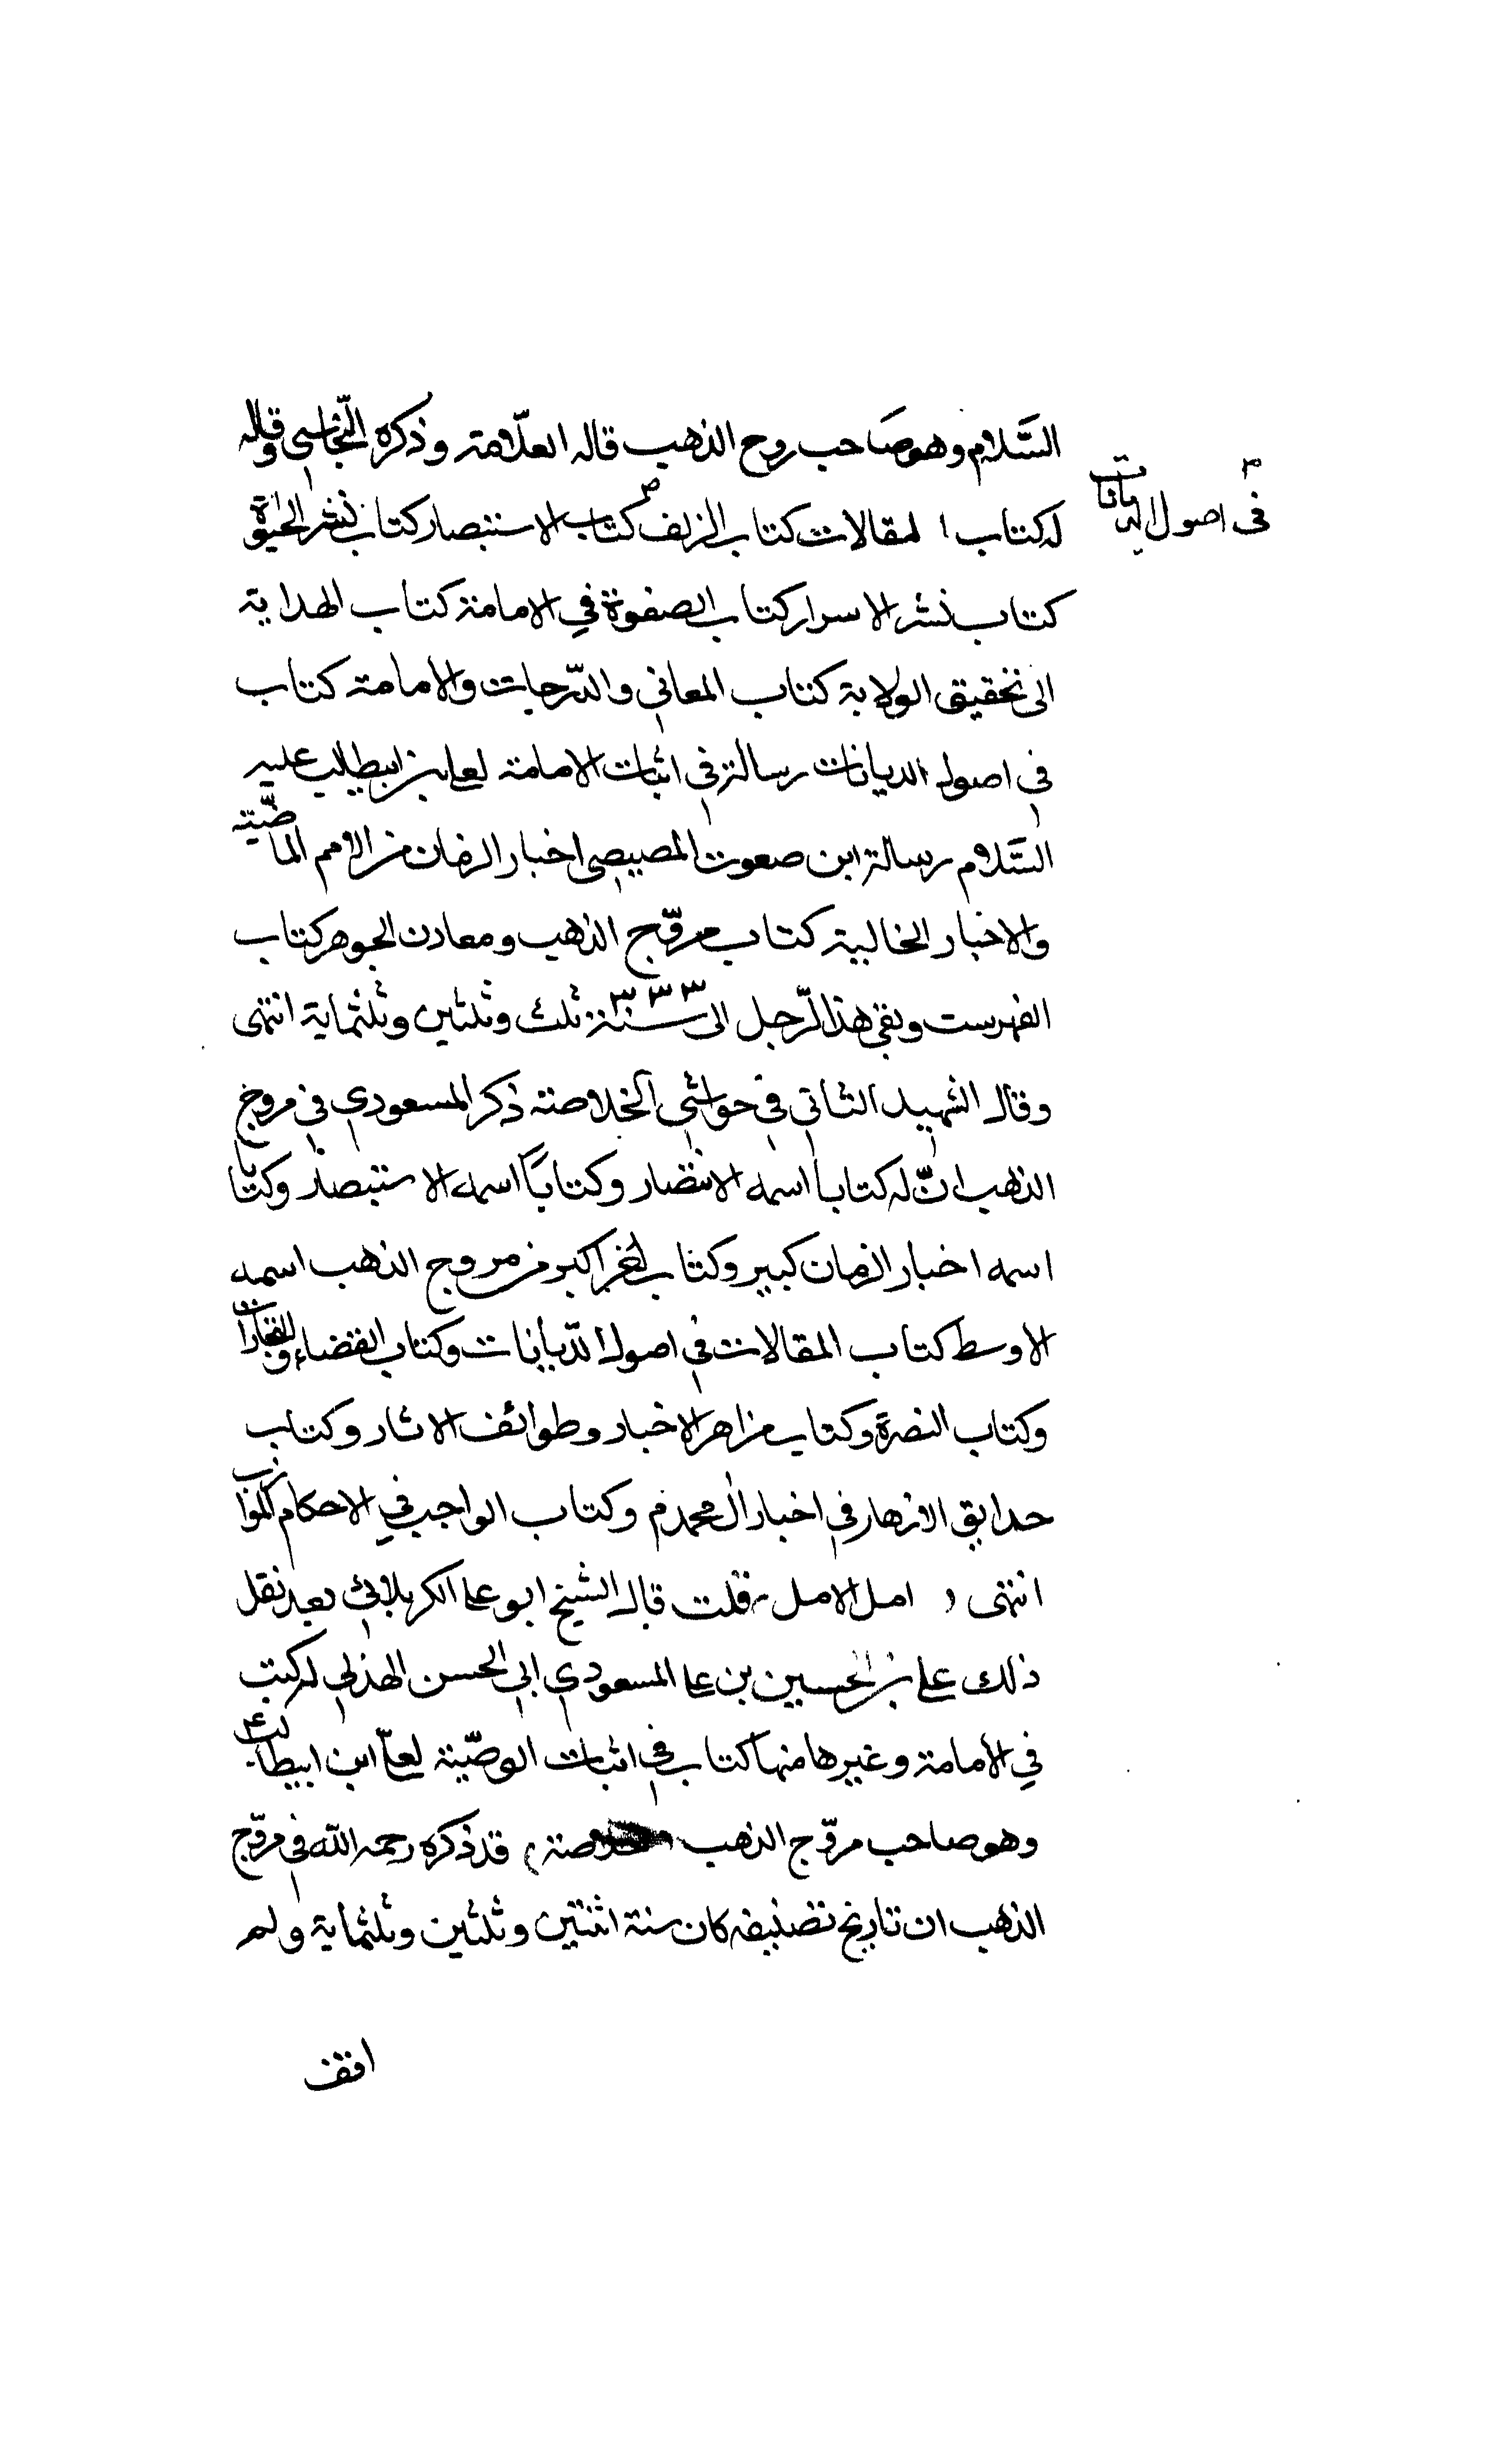 السَّلام وهو صَاحب روح الذهب قاله العلّامة وذكره النّجاشي وقال
له كتاب المقالات كتاب الزلف كتاب الاستبصار كتاب نشر الحيوة
في اصول الديانات
كتاب نشر الاسرار كتاب الصفوة في الامامة كتاب الهداية
الى تحقيق الولاية كتاب المعاني والدّرجات والامامة كتاب
في اصول الديانات رسالة في اثبات الامامة لعلي بن ابيطالب عليه
السَّلام رسالة ابن صعوت المصيصي اخبار الزمان من الامم الماضيّة
والاخبار الخالية كتاب مروّج الذهب ومعادن الجوهر كتاب
الفهرست وبقي هذا الرّجل الى سنة ٣٣٣ ثلث وثلثين وثلثماية انتهى
وقال الشهيد الثاني في حواشي الخلاصة ذكر المسعودي في مروج
الذهب انّ له كتابا اسمه الانتصار وكتاباً اسمه الاستبصار وكتابا
اسمه اخبار الزمان كبير وكتاب اخر اكبر من مروج الذهب اسمه
الاوسط كتاب المقالات في اصول الدّيانات وكتاب القضاء والتجارات
وكتاب النصرة وكتاب مزاهر الاخبار وطوائف الاثار وكتاب
حدايق الازهار في اخبار ال محمد م وكتاب الواجب في الاحكام اللوازب
انتهى امل الامل قلت قال الشيخ ابو علي الكربلائي بعد نقل
ذلك علي بن الحسين بن علي المسعودي ابي الحسن الهذلي له كتب
في الامامة وغيرها منها كتاب في اثبات الوصيّة لعليّ ابن ابيطالب ع
وهو صاحب مروّج الذهب خلاصة قد ذكره رحمه الله في مروّج
الذهب ان تاريخ تصنيفه كان سنة اثنتين وثلثين وثلثماية ولم
اقف